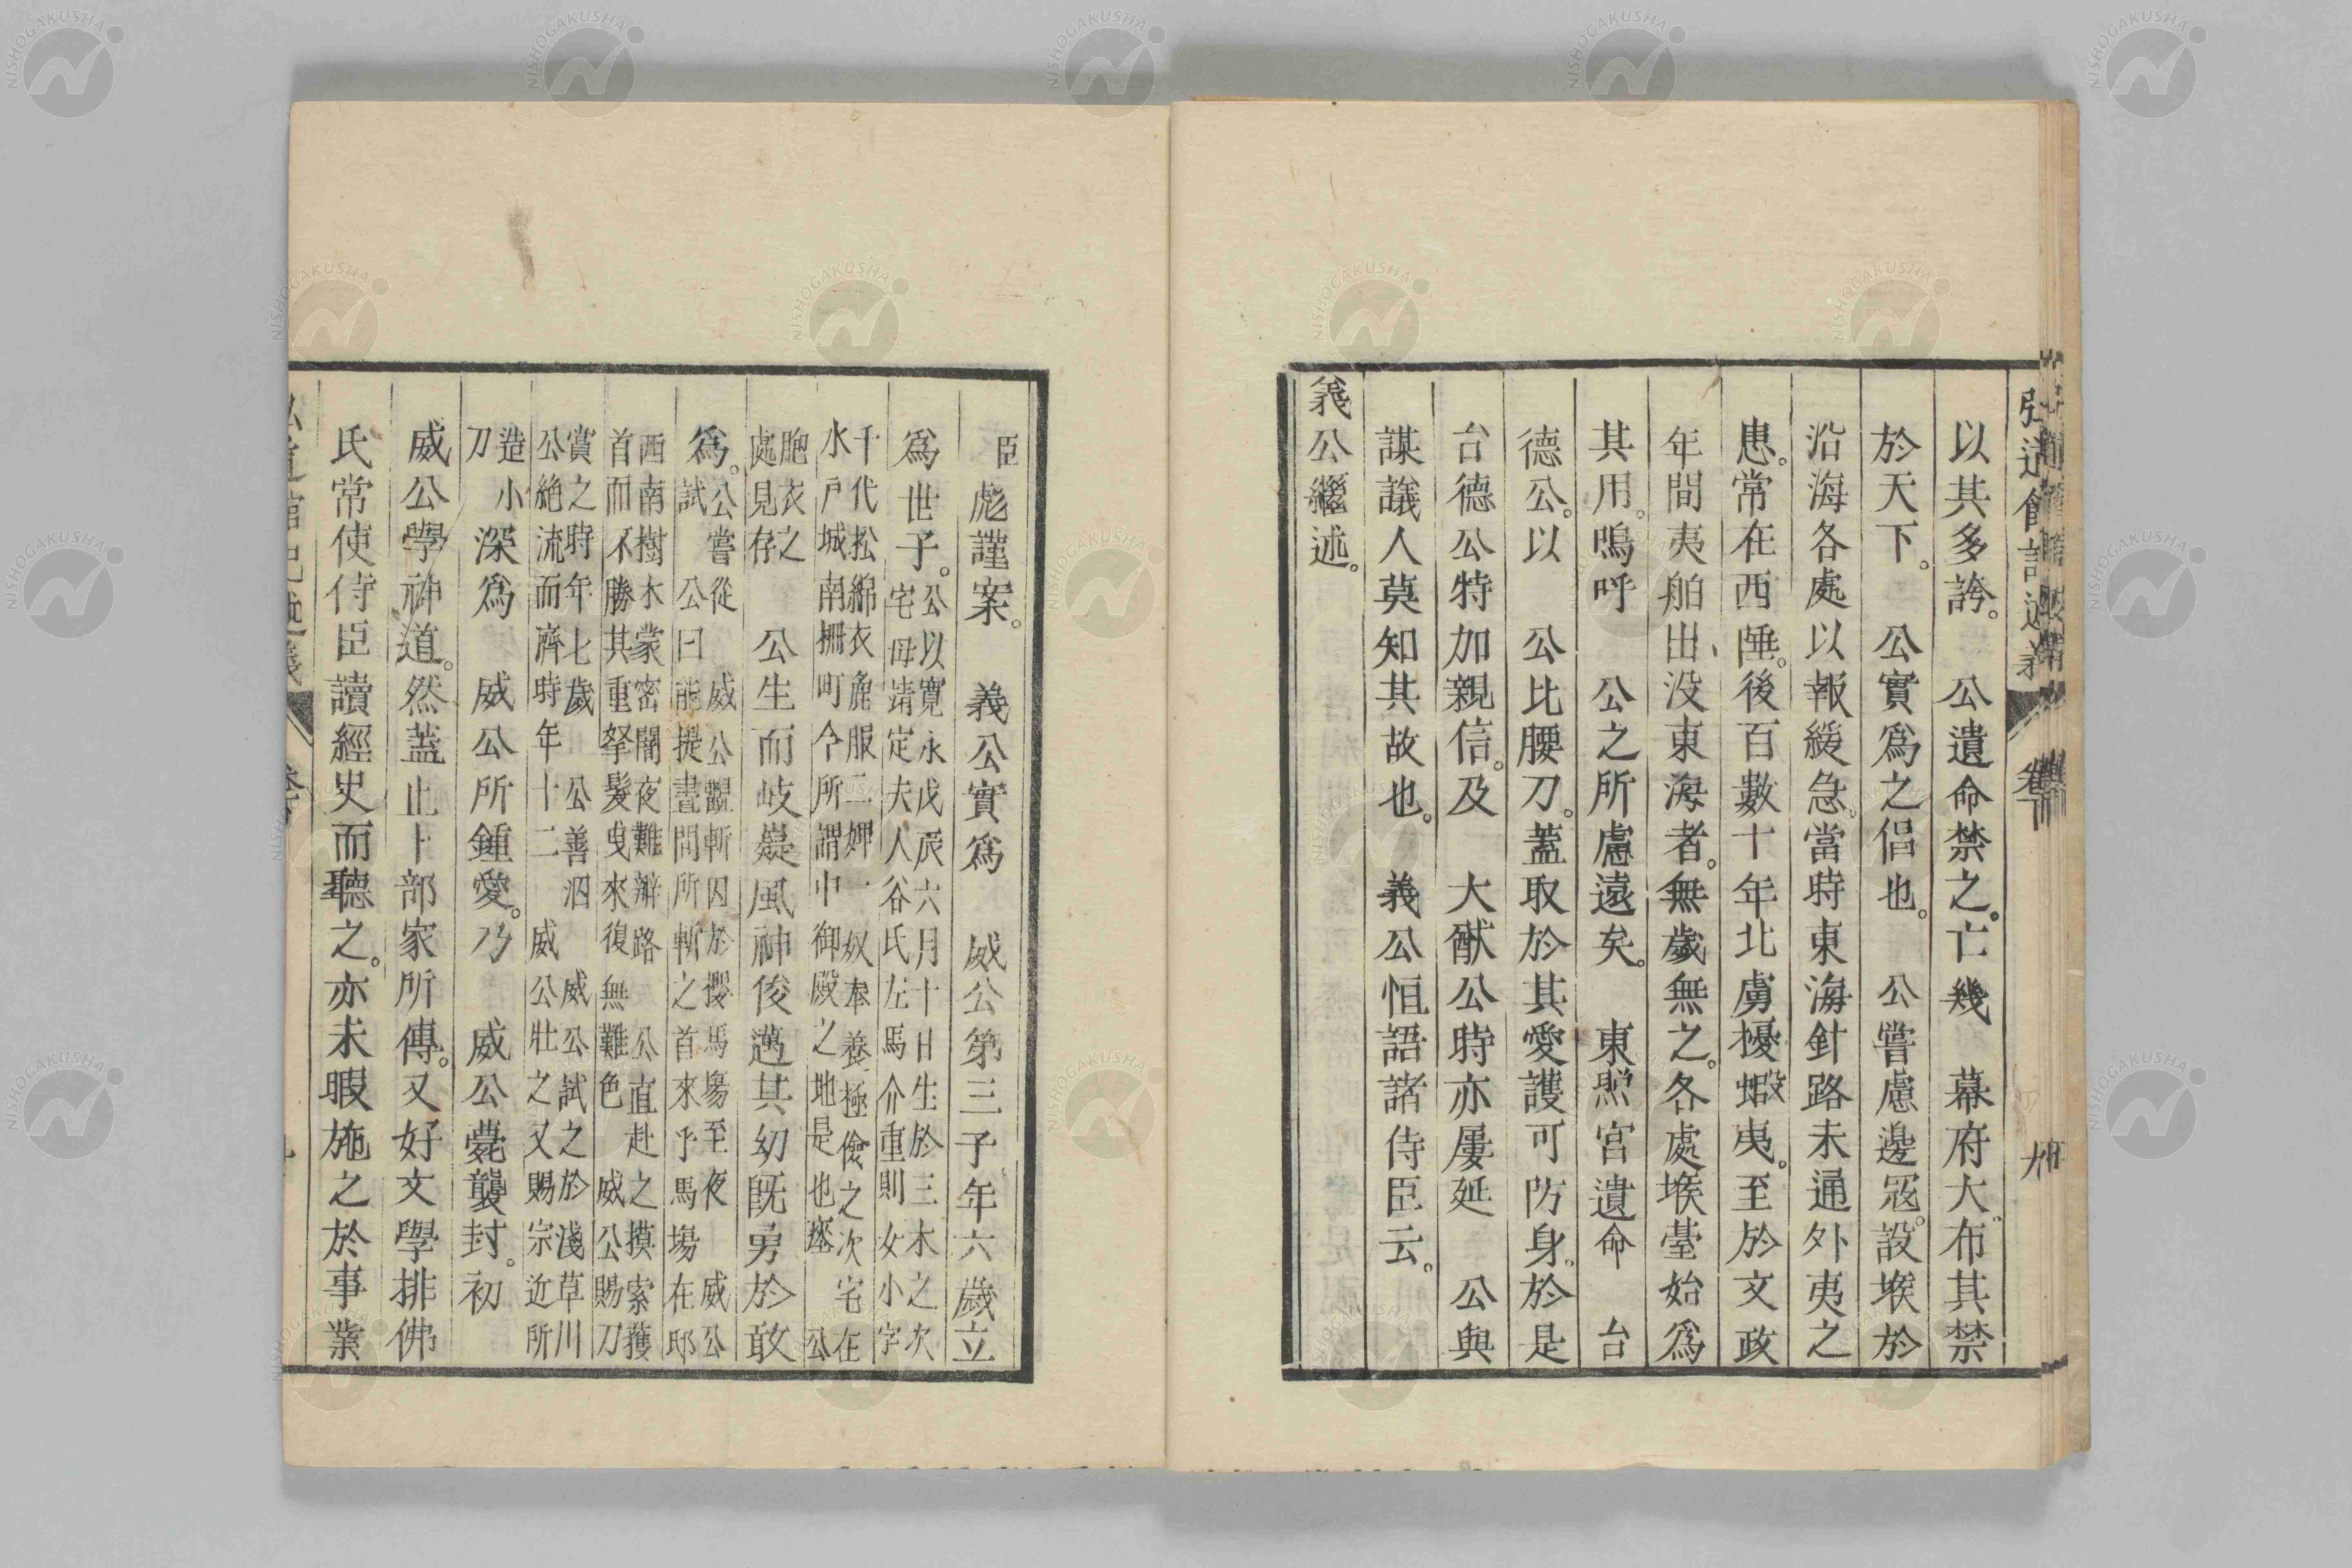 以其多誇。　公遺命禁之。亡幾　幕府大布其禁
於天下。　公實爲之倡也。　公嘗慮邊寇。設堠於
沿海各處以報緩急。當時東海針路未通外夷之
患。常在西陲。後百數十年北虜擾蝦夷。至於文政
年間夷舶出没東海者。無歲無之。各處堠臺始爲
其用。嗚呼　公之所慮遠矣。　東照宮遺命　台
德公。以　公比腰刀。蓋取於其愛護可防身。於是
台德公特加親信。及　大猷公時亦屢延　公與
謀議人莫知其故也。　義公恒語諸侍臣云。
義公繼述。
臣彪謹案。　義公實爲　威公第三子年六歲立
爲世子。
公以寬永戊辰六月十日生於三木之次
宅母靖定夫人谷氏左馬介重則女小字
千代松綿衣麁服二婢一奴奉養極儉之次宅在
水戸城南柵町今所謂中御殿之地是也　公
胞衣之
處見存
公生而岐嶷風神俊邁其幼既勇於敢
爲。
公嘗從　威公觀斬囚於櫻馬場至夜　威公
試　公曰能提晝間所斬之首來乎馬場在邸
西南樹木蒙密闇夜難辨路　公直赴之摸索獲
首而不勝其重拏髮曳來復無難色　威公賜刀
賞之時年七歲　公善泅　威公試之於淺草川
公絶流而濟時年十二　威公壯之又賜宗近所
造小
刀
深爲　威公所鍾愛。乃　威公薨襲封。初
威公學神道。然蓋止卜部家所傳。又好文學排佛
氏常使侍臣讀經史而聽之。亦未暇施之於事業